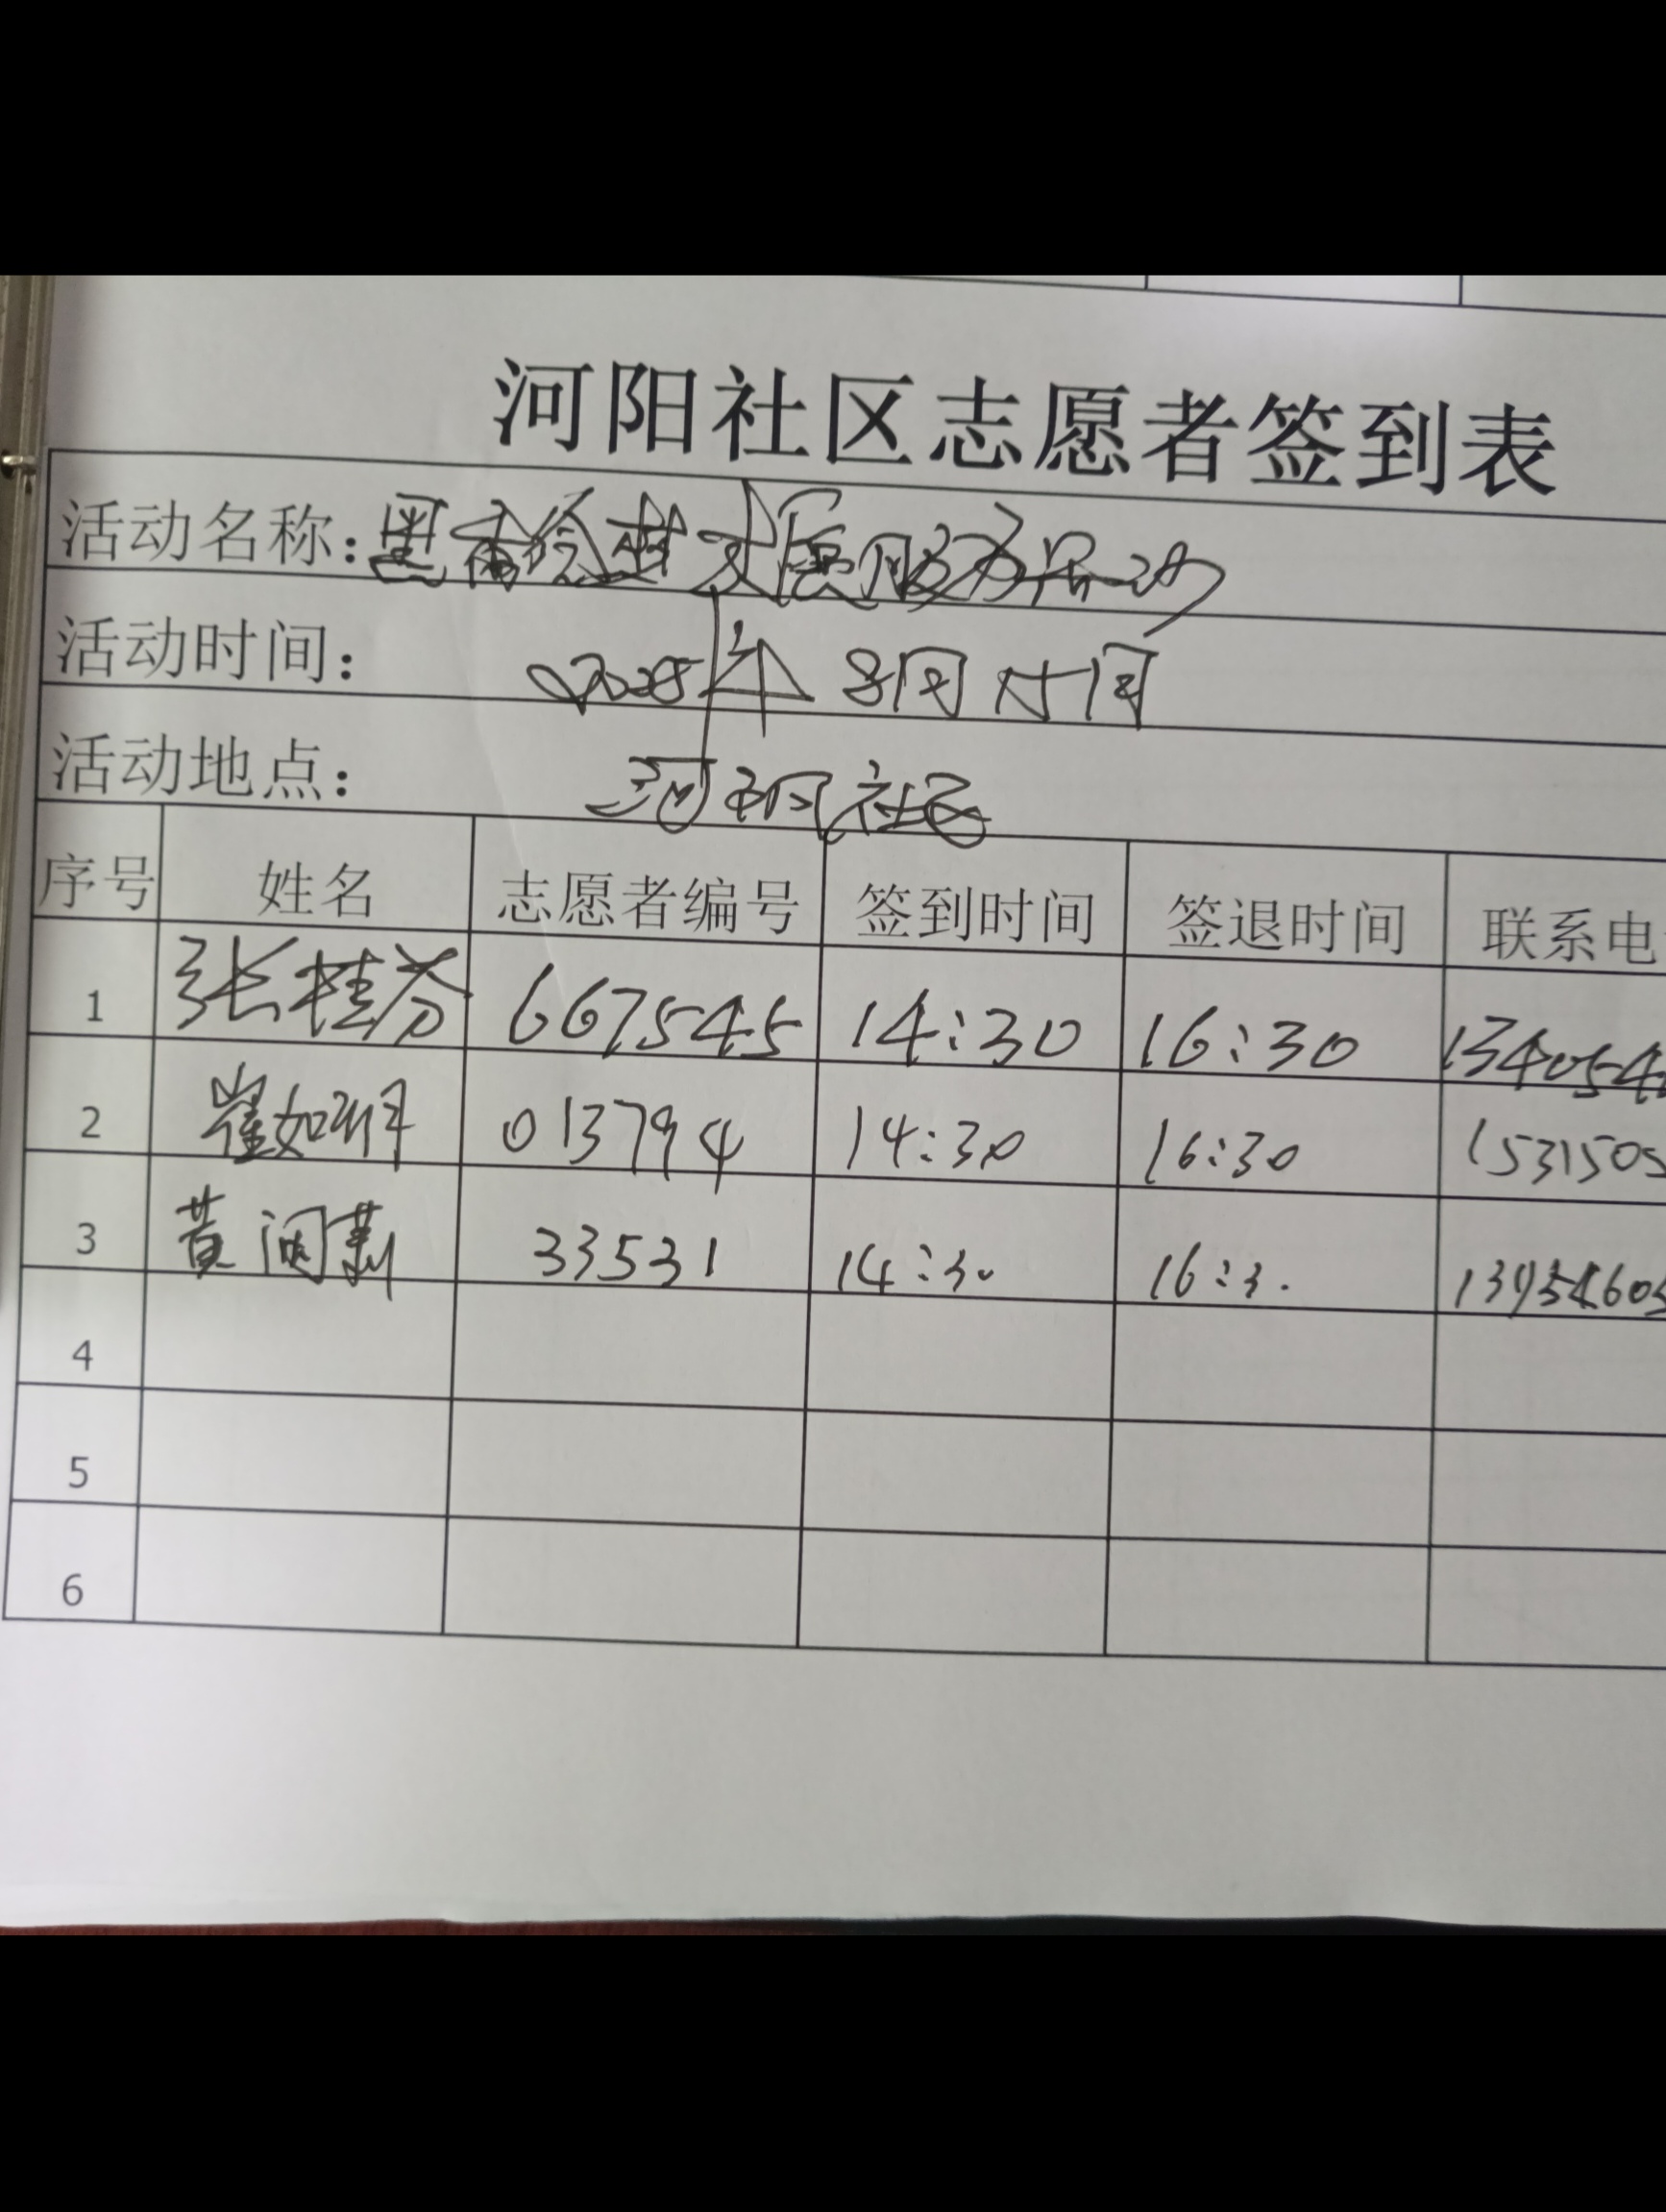 河阳社区志愿者签到表
活动名称:墨香绘梦志愿服务活动
活动时间: 2025年8月15日
活动地点: 河阳社区
序号 姓名 志愿者编号 签到时间 签退时间 联系电
1 张桂芬 667545 14:30 16:30 134054
2 崔如 013794 14:30 16:30 1531505
3 黄 33531 14:30 16:3.
4
5
6